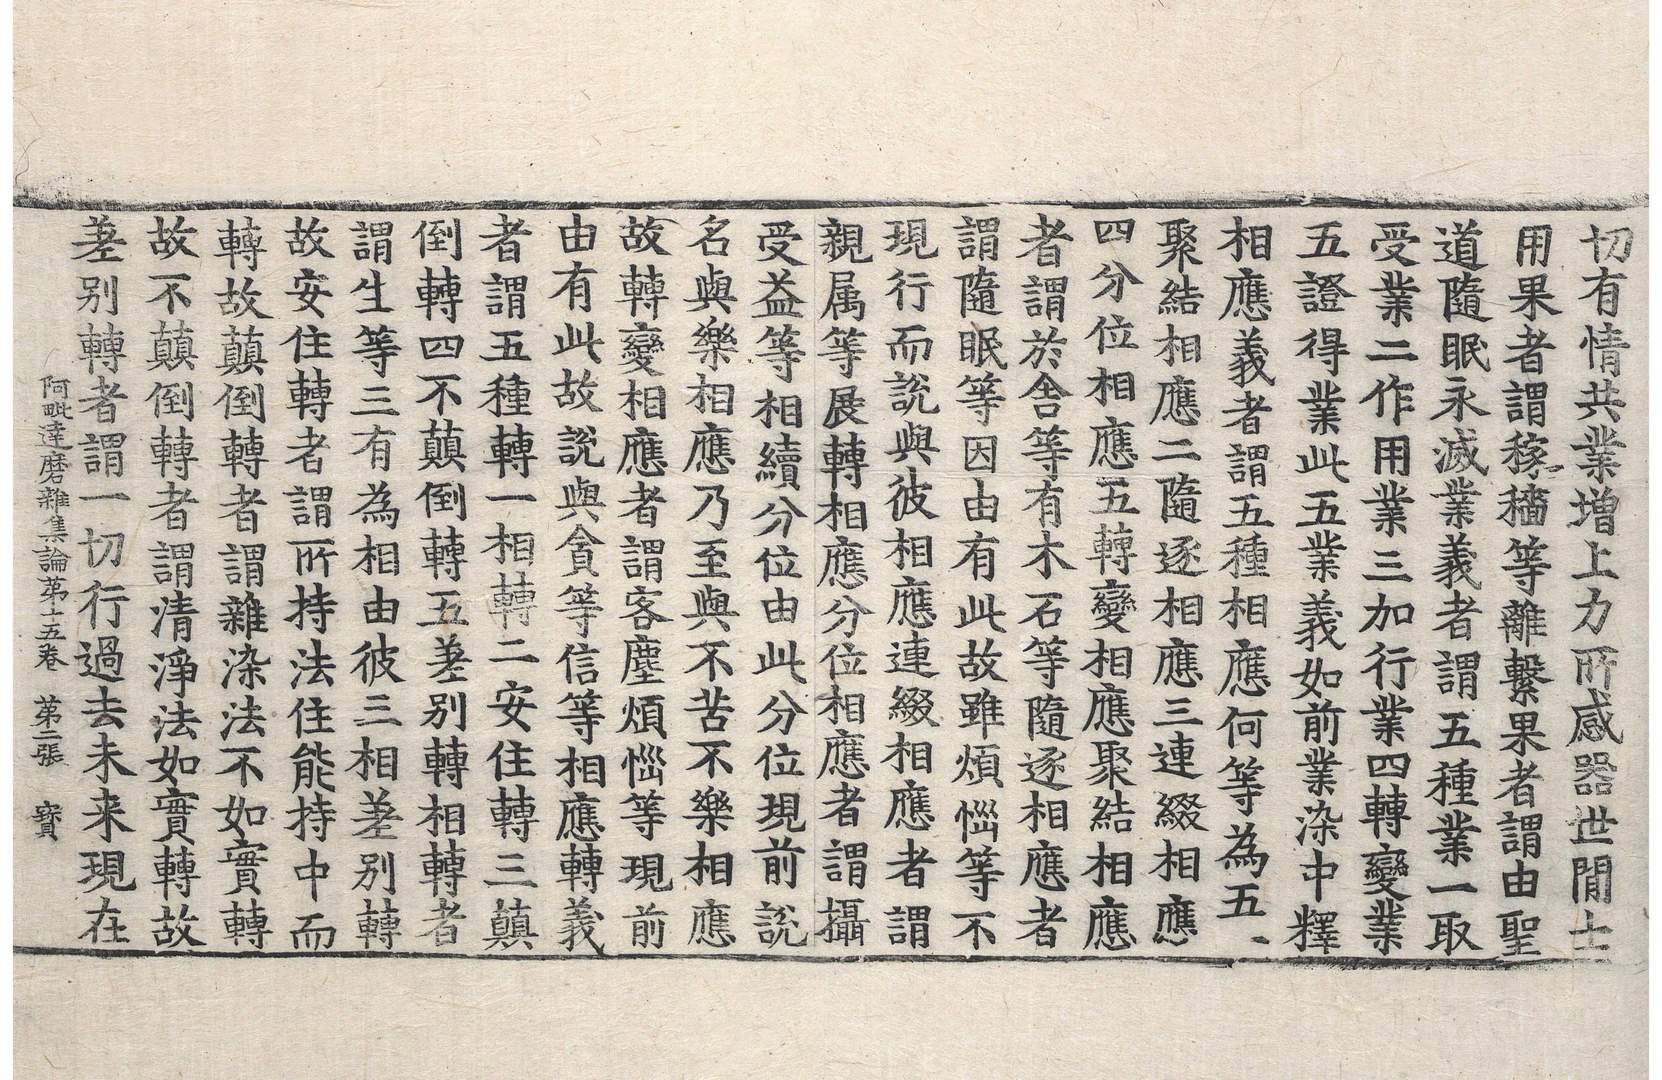 切有情共業增上力所感器世間士
用果者謂稼穡等離繫果者謂由聖
道隨眠永滅業義者謂五種業一取
受業二作用業三加行業四轉變業
五證得業此五業義如前業染中釋
相應義者謂五種相應何等為五一
聚結相應二隨逐相應三連綴相應
四分位相應五轉變相應聚結相應
者謂於舍等有木石等隨逐相應者
謂隨眠等因由有此故雖煩惱等不
現行而說與彼相應連綴相應者謂
親属等展轉相應分位相應者謂攝
受益等相續分位由此分位現前說
名與樂相應乃至與不苦不樂相應
故轉變相應者謂客塵煩惱等現前
由有此故說與貪等信等相應轉義
者謂五種轉一相轉二安住轉三顛
倒轉四不顛倒轉五差別轉相轉者
謂生等三有為相由彼三相差別轉
故安住轉者謂所持法住能持中而
轉故顛倒轉者謂雜染法不如實轉
故不顛倒轉者謂清淨法如實轉故
差別轉者謂一切行過去未来現在
阿毗達磨雜集論第十五卷 第二張 寶